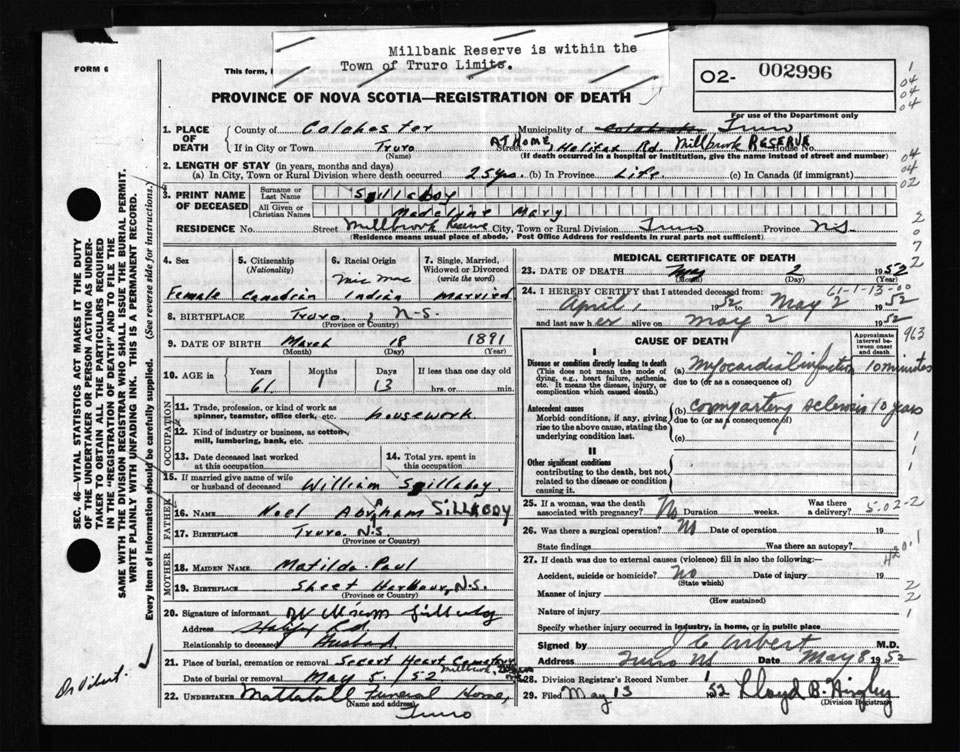 Millbank Reserve is within the
Town of Truro Limits.
FORM 6
This form,
02- 002996
For use of the Department only
PROVINCE OF NOVA SCOTIA—REGISTRATION OF DEATH
1. PLACE OF DEATH
County of Colchester Municipality of Colchester Truro
If in City or Town Truro (Name) AT HOME Street, Halifax Rd. Millbrook RESERVE House No.
(If death occurred in a hospital or institution, give the name instead of street and number)
2. LENGTH OF STAY (in years, months and days)
(a) In City, Town or Rural Division where death occurred 25 yrs. (b) In Province Life (c) In Canada (if immigrant)
3. PRINT NAME OF DECEASED
Surname or Last Name Sillaboy
All Given or Christian Names Madeline Mary
RESIDENCE No. Street Millbrook Reserve City, Town or Rural Division Truro Province N.S.
(Residence means usual place of abode. Post Office Address for residents in rural parts not sufficient)
4. Sex Female
5. Citizenship (Nationality) Canadian
6. Racial Origin Mic Mac Indian
7. Single, Married, Widowed or Divorced (write the word) Married
8. BIRTHPLACE Truro, N-S.
(Province or Country)
9. DATE OF BIRTH March 18 1891
(Month) (Day) (Year)
10. AGE in Years 61 Months Days 13 If less than one day old hrs. or min.
OCCUPATION
11. Trade, profession, or kind of work as spinner, teamster, office clerk, etc. housework
12. Kind of industry or business, as cotton mill, lumbering, bank, etc.
13. Date deceased last worked at this occupation
14. Total yrs. spent in this occupation
15. If married give name of wife or husband of deceased William Sillaboy
FATHER
16. NAME Noel Abraham SILLABOY
17. BIRTHPLACE Truro N.S.
(Province or Country)
MOTHER
18. MAIDEN NAME Matilda Paul
19. BIRTHPLACE Sheet Harbour, N.S.
(Province or Country)
20. Signature of informant William Sillaboy
Address Halifax Rd
Relationship to deceased Husband
21. Place of burial, cremation or removal Secert Heart Cemetery
Millbrook,
Date of burial or removal May 5/52
22. UNDERTAKER Mattatall Funeral Home,
(Name and address)
Truro
MEDICAL CERTIFICATE OF DEATH
23. DATE OF DEATH May 2 1952
(Month) (Day) (Year)
61-1-13-00
24. I HEREBY CERTIFY that I attended deceased from:
April, 1952 to May 2 1952
and last saw her alive on May 2 1952
CAUSE OF DEATH
Approximate interval between onset and death
963
I
Disease or condition directly leading to death
(This does not mean the mode of dying, e.g., heart failure, asthenia, etc. It means the disease, injury, or complication which caused death.)
(a) Myocardial infarction 10 minutes
due to (or as a consequence of)
Antecedent causes
Morbid conditions, if any, giving rise to the above cause, stating the underlying condition last.
(b) Coronary artery sclerosis 10 years
due to (or as a consequence of)
(c)
II
Other significant conditions
contributing to the death, but not related to the disease or condition causing it.
25. If a woman, was the death associated with pregnancy? No Duration weeks. Was there a delivery?
5-02-2
26. Was there a surgical operation? No Date of operation 19
State findings Was there an autopsy?
27. If death was due to external causes (violence) fill in also the following:—
Accident, suicide or homicide? No Date of injury 19
(State which)
Manner of injury
(How sustained)
Nature of injury
Specify whether injury occurred in industry, in home, or in public place
Signed by M.D.
Address Truro NS Date May 8 1952
28. Division Registrar's Record Number 1
29. Filed May 13 1952 Lloyd B.
(Division Registrar)
SEC. 46—VITAL STATISTICS ACT MAKES IT THE DUTY
OF THE UNDERTAKER OR PERSON ACTING AS UNDER-
TAKER TO OBTAIN ALL THE PARTICULARS REQUIRED
IN THE "REGISTRATION OF DEATH" AND TO FILE THE
SAME WITH THE DIVISION REGISTRAR WHO SHALL ISSUE THE BURIAL PERMIT.
WRITE PLAINLY WITH UNFADING INK. THIS IS A PERMANENT RECORD.
Every item of information should be carefully supplied. (See reverse side for instructions.)